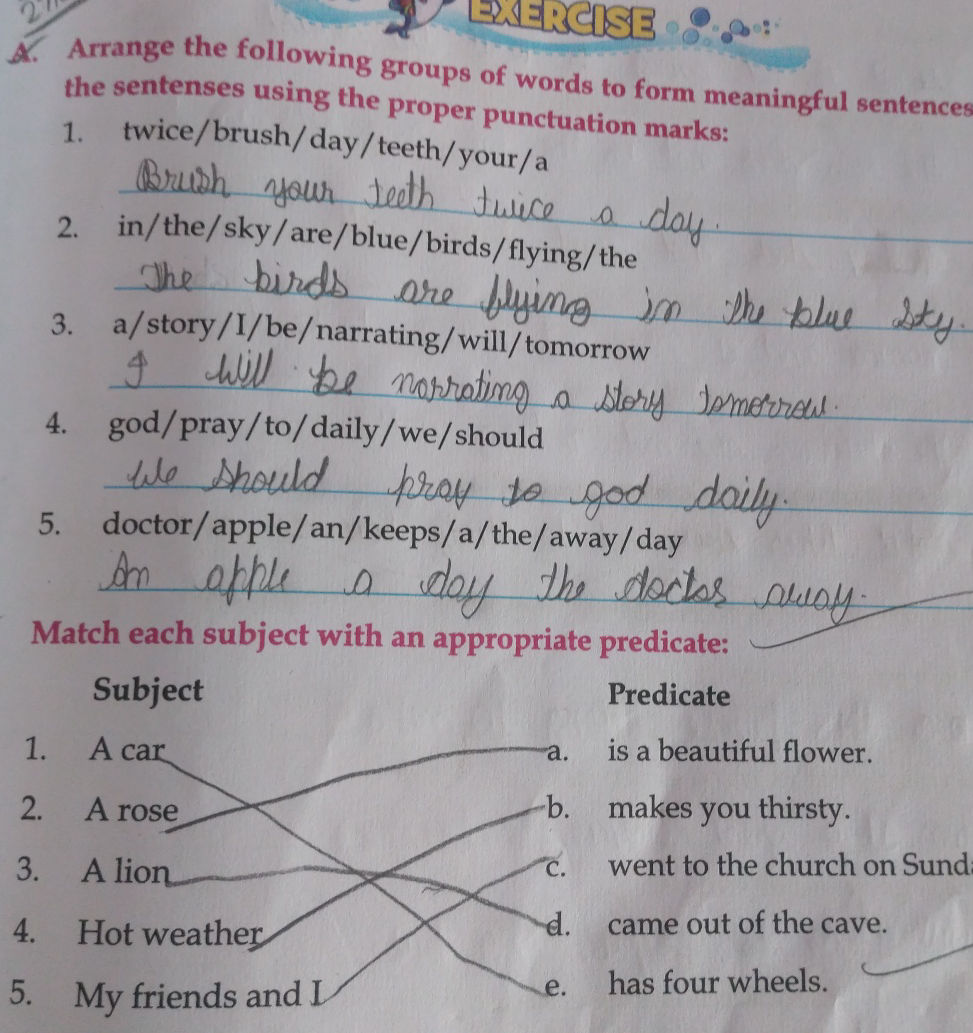 EXERCISE
A. Arrange the following groups of words to form meaningful sentences
the sentenses using the proper punctuation marks:
1. twice/brush/day/teeth/your/a
Brush your teeth twice a day.
2. in/the/sky/are/blue/birds/flying/the
The birds are flying in the blue sky.
3. a/story/I/be/narrating/will/tomorrow
I will be narrating a story tomorrow.
4. god/pray/to/daily/we/should
We should pray to god daily.
5. doctor/apple/an/keeps/a/the/away/day
An apple a day the doctor away.
Match each subject with an appropriate predicate:
Subject Predicate
1. A car a. is a beautiful flower.
2. A rose b. makes you thirsty.
3. A lion c. went to the church on Sund
4. Hot weather d. came out of the cave.
5. My friends and I e. has four wheels.